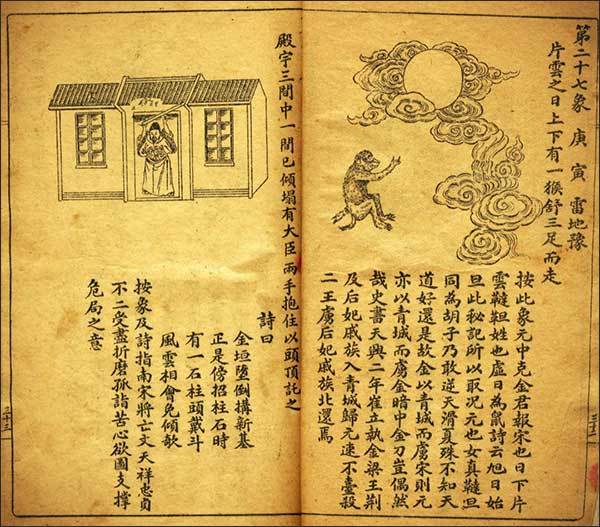 第二十七象 庚寅 雷地豫
片雲之日上下有一猴舒三足而走
按此象元中克金君報宋也日下片
雲韃靼姓也虛日為鼠詩云旭日始
旦此秘記所以取元也女真韃靼
同為胡子乃敢逆天滑夏殊不知天
道好還是故金以青城而虜宋則元
亦以青城而虜金暗中金刀豈偶然
哉史書天興二年崔立執金梁王荆
及后妃戚族入青城歸元速不臺殺
二王虜后妃戚族北還焉
殿宇三間中一間已傾塌有大臣兩手抱住以頭頂託之
詩曰
金垣墮倒搆新基
正是傍招柱石時
有一石柱頭戴斗
風雲相會免傾欹
按象及詩指南宋將亡文天祥忠貞
不二受盡折磨孤詣苦心欲圖支撐
危局之意
三十三